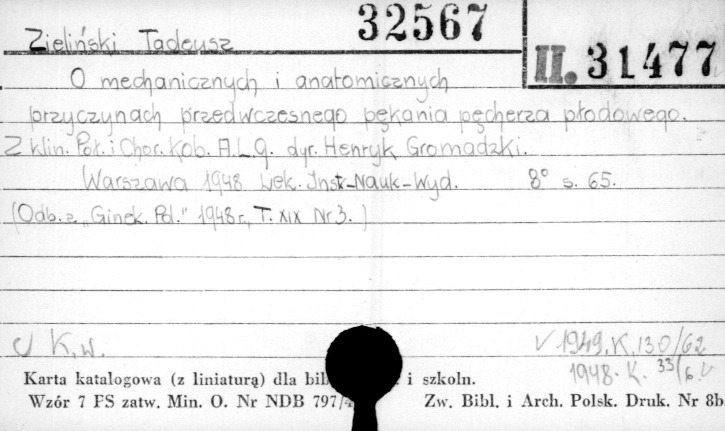 32567
Zieliński Tadeusz
II. 31477
O mechanicznych i anatomicznych
przyczynach przedwczesnego pękania pęcherza płodowego.
Z klin. Poł. i Chor. Kob. A.L.g. dyr. Henryk Gromadzki.
Warszawa 1948 Lek. Inst-Nauk-Wyd. 8° s. 65.
(Odb. z „Ginek. Pol." 1948 r., T. XIX Nr 3.)
K.w.
V 1949. K. 130/62
1948. K. 33/6 V
Karta katalogowa (z liniaturą) dla bib i szkoln.
Wzór 7 PS zatw. Min. O. Nr NDB 797/ Zw. Bibl. i Arch. Polsk. Druk. Nr 8b